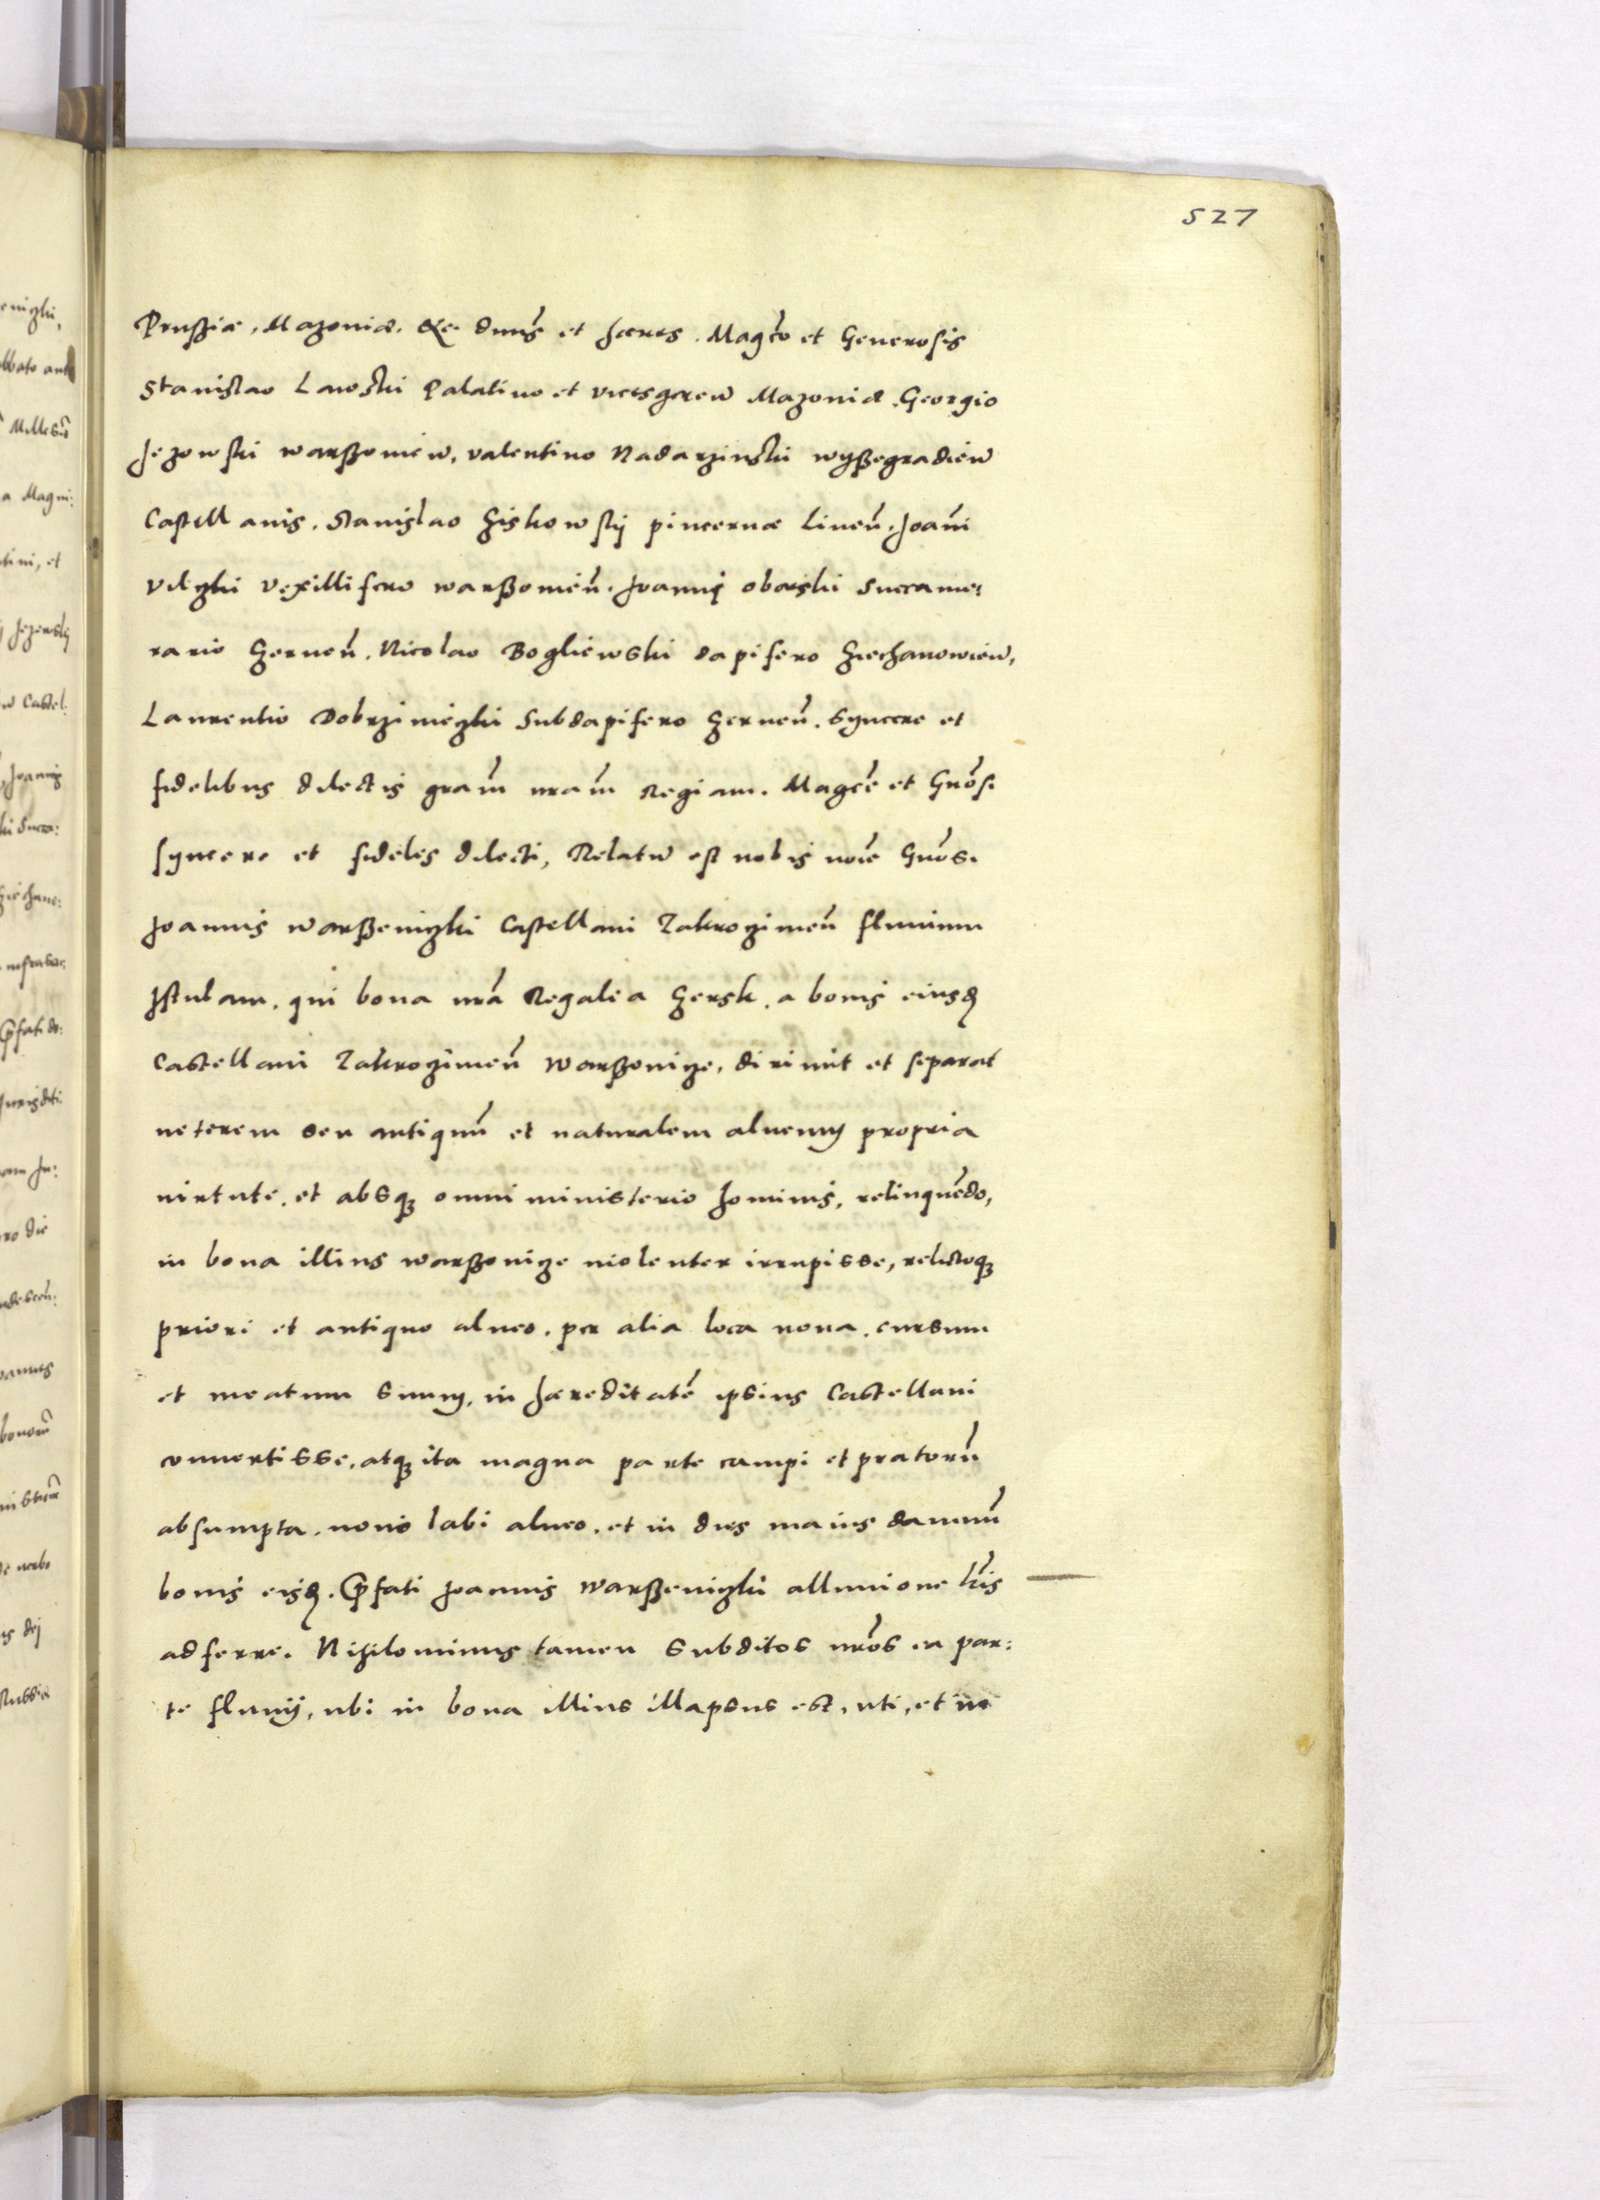 527
Prussiæ, Mazoniæ. &c. dnus̃ et hæres. Magc̃o et Generosis
Stanislao Lawski Palatino et vicesgereñ Mazoniæ. Georgio
Jezowski warssowieñ, valentino Nadarzinski wyssegradieñ
Castellanis. Stanislao Ziskowsky pincernæ Liueñ. Joañi
Vilghi Vexillifero warssowieñ. Joannis oborski Succame:
rario Zerneñ. Nicolao Bogliewski dapifero Ziechanowieñ,
Laurentio Dobrzinieghi Subdapifero Zerneñ. Syncere et
fidelibus dilectis gram̃ nram̃ Regiam. Magc̃e et Gnõs.
syncere et fideles dilecti, Relatũ est nobis noĩe Gnõs.
Joannis warssenighi Castellani Zakrozimeñ fluuium
Istulam, qui bona nrã Regalea Zersk, a bonis eiusd
Castellani Zakrozimeñ warssenize, dirimit et separat
ueterem seu antiquũ et naturalem alueum propria
uirtute, et absq omni ministerio hominis, relinquẽdo,
in bona illius warssenize uiolenter irrupisse, relictoq
priori et antiquo alueo, per alia loca noua, cursum
et meatum suum, in hæreditatẽ ipsius Castellani
conuertisse, atq ita magna parte campi et pratorũ
absumpta, nouo labi alueo, et in dies maius damnũ
bonis eisd. Pfati Joannis warssenighi alluuione hĩs
adferre. Nihilominus tamen subditos nrõs ea par:
te fluuij, ubi in bona illius illapsus est, uti, et in